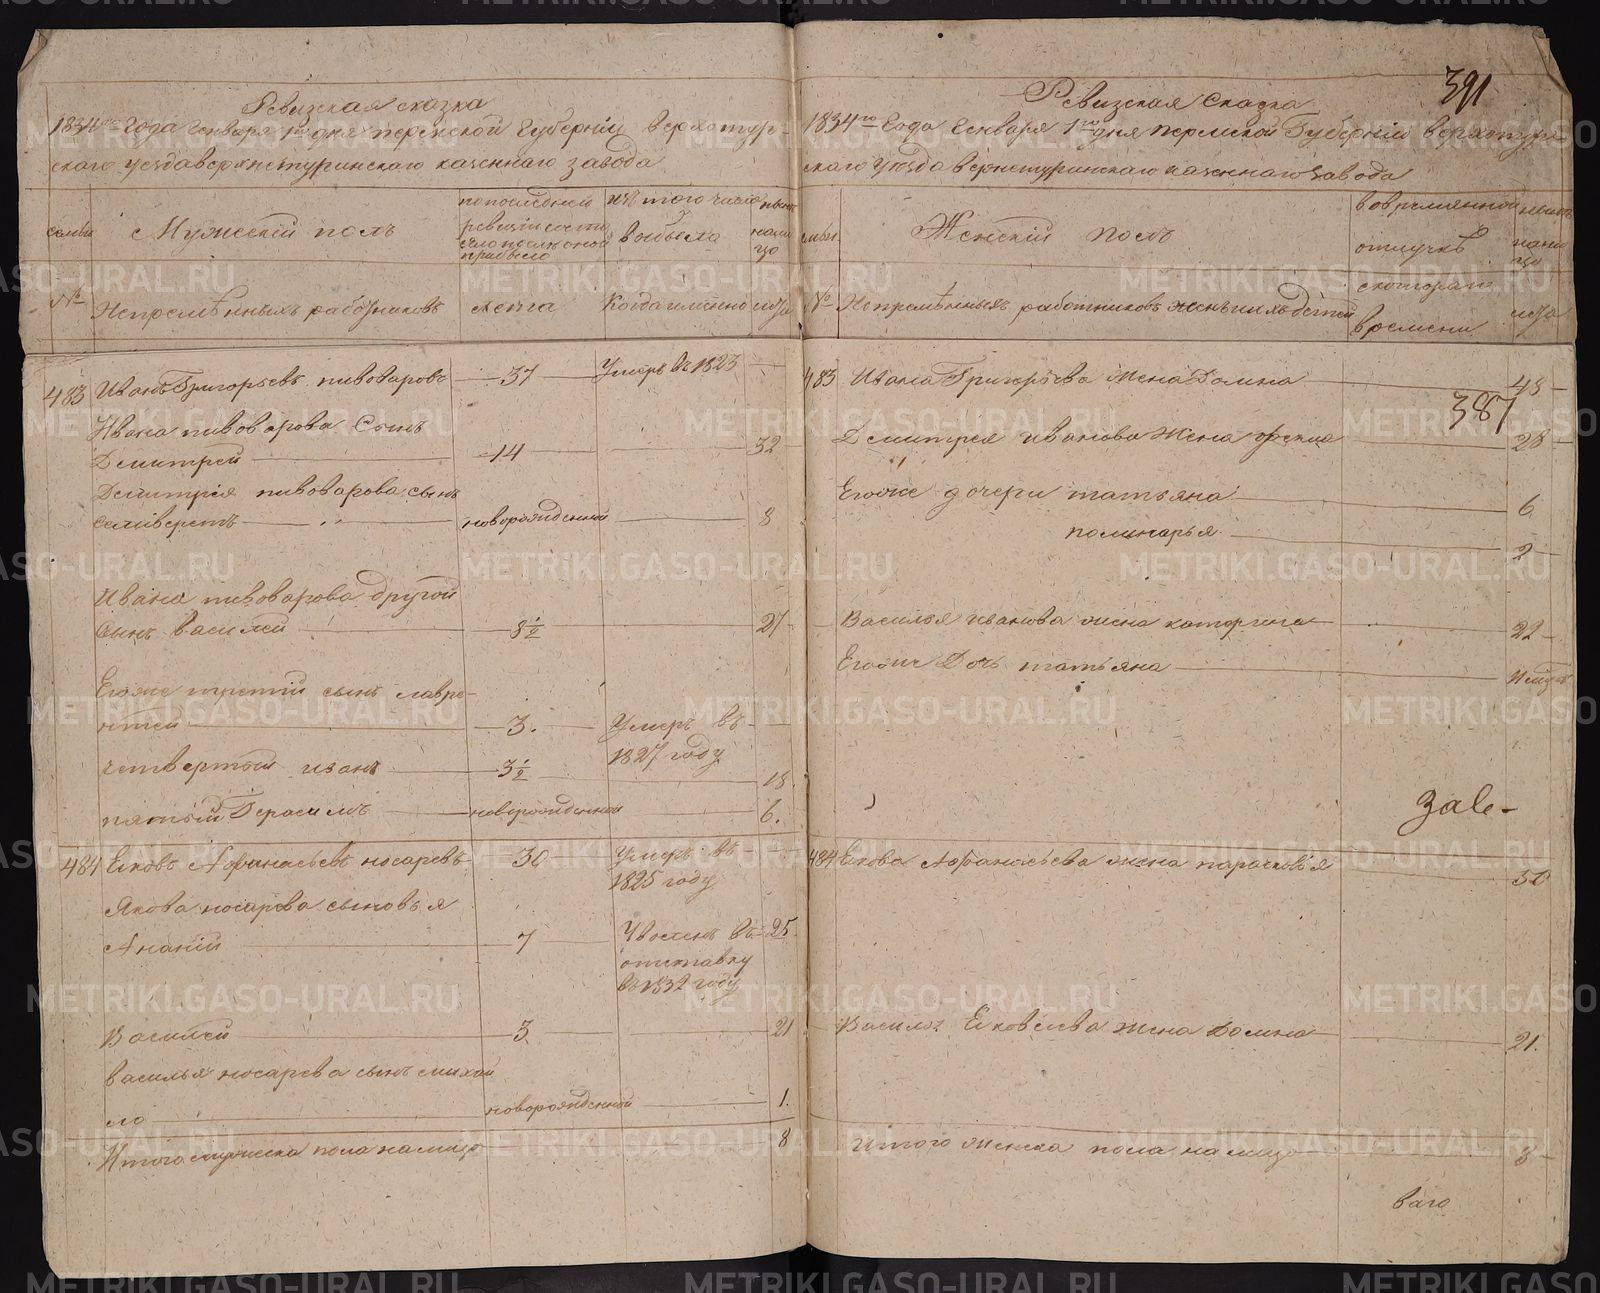 Ревизская сказка
1834го Года Генваря 1го дня пермской Губернiи верхотур-
скаго уезда верхнетуринскаго казеннаго завода
семьи
Мужескiй полъ
по последней
ревизiи состо
яло и после оной
прибыло
изъ того числа
выбыло
ныне
нали
цо
№
Непременныхъ работниковъ
лета
Когда именно
лета
483 Иванъ Григорьевъ пивоваровъ 37 Умеръ въ 1823
Ивана пивоварова Сынъ
Дмитрей 14 32
Дмитрiя пивоварова сынъ
селиверстъ новорожденной 8
Ивана пивоварова другой
сынъ василей 8½ 27
Егоже третiй сынъ лавре-
нтей 3. Умеръ въ
1827 году
четвертый иванъ 3½ 18
пятый Герасимъ новорожденной 6.
484 Яковъ Афонасьевъ носаревъ 30 Умеръ въ
1825 году
Якова носарева сыновья
Ананiй 7 Уволенъ въ 25
отставку
въ 1832 году
Василей 3 21
василья носарева сынъ михай
ло новорожденной 1.
Итого мужеска пола налицо 8
391
Ревизская Сказка
1834го Года Генваря 1го дня пермской Губернiи верхотур
скаго Уезда верхнетуринскаго казеннаго завода
семьи
Женскiй полъ
во временной
отлучке
с котораго
времени
ныне
нали
цо
№
Непременныхъ работниковъ жены и ихъ детей
лета
483 Ивана Григорьева жена Домна 48
387
Дмитрея иванова Жена 28
Егоже дочери татьяна 6
полинарья 2
Василья иванова жена катерина 22
Егоже Дочь татьяна
зале-
484 Якова Афанасьева жена парасковья 50
Василья Яковлева жена домна 21.
Итого женска пола налицо 8
ваго
METRIKI.GASO-URAL.RU